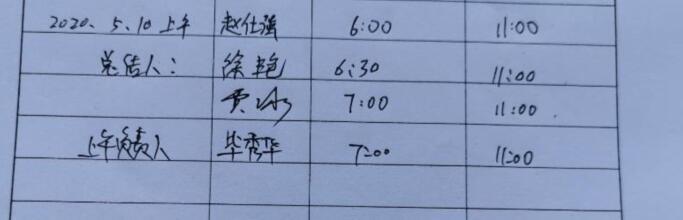 2020.5.10上午 赵仕强 6:00 11:00
总结人: 徐艳 6:30 11:00
贾冰 7:00 11:00
上午负责人 毕秀华 7:00 11:00